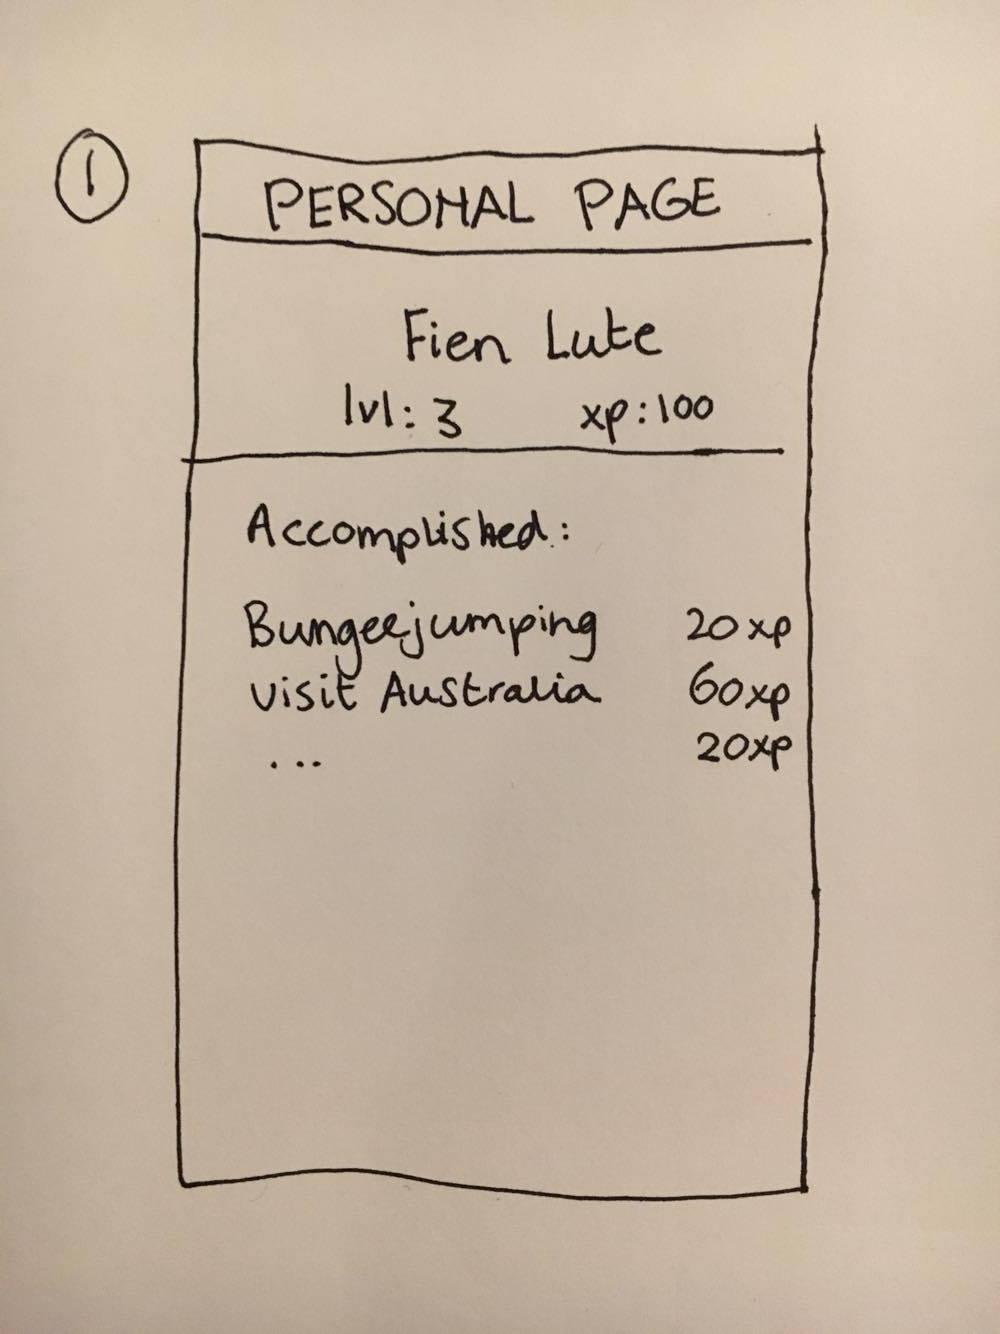 1
PERSONAL PAGE
Fien Lute
lvl: 3 xp: 100
Accomplished:
Bungeejumping 20xp
visit Australia 60xp
... 20xp